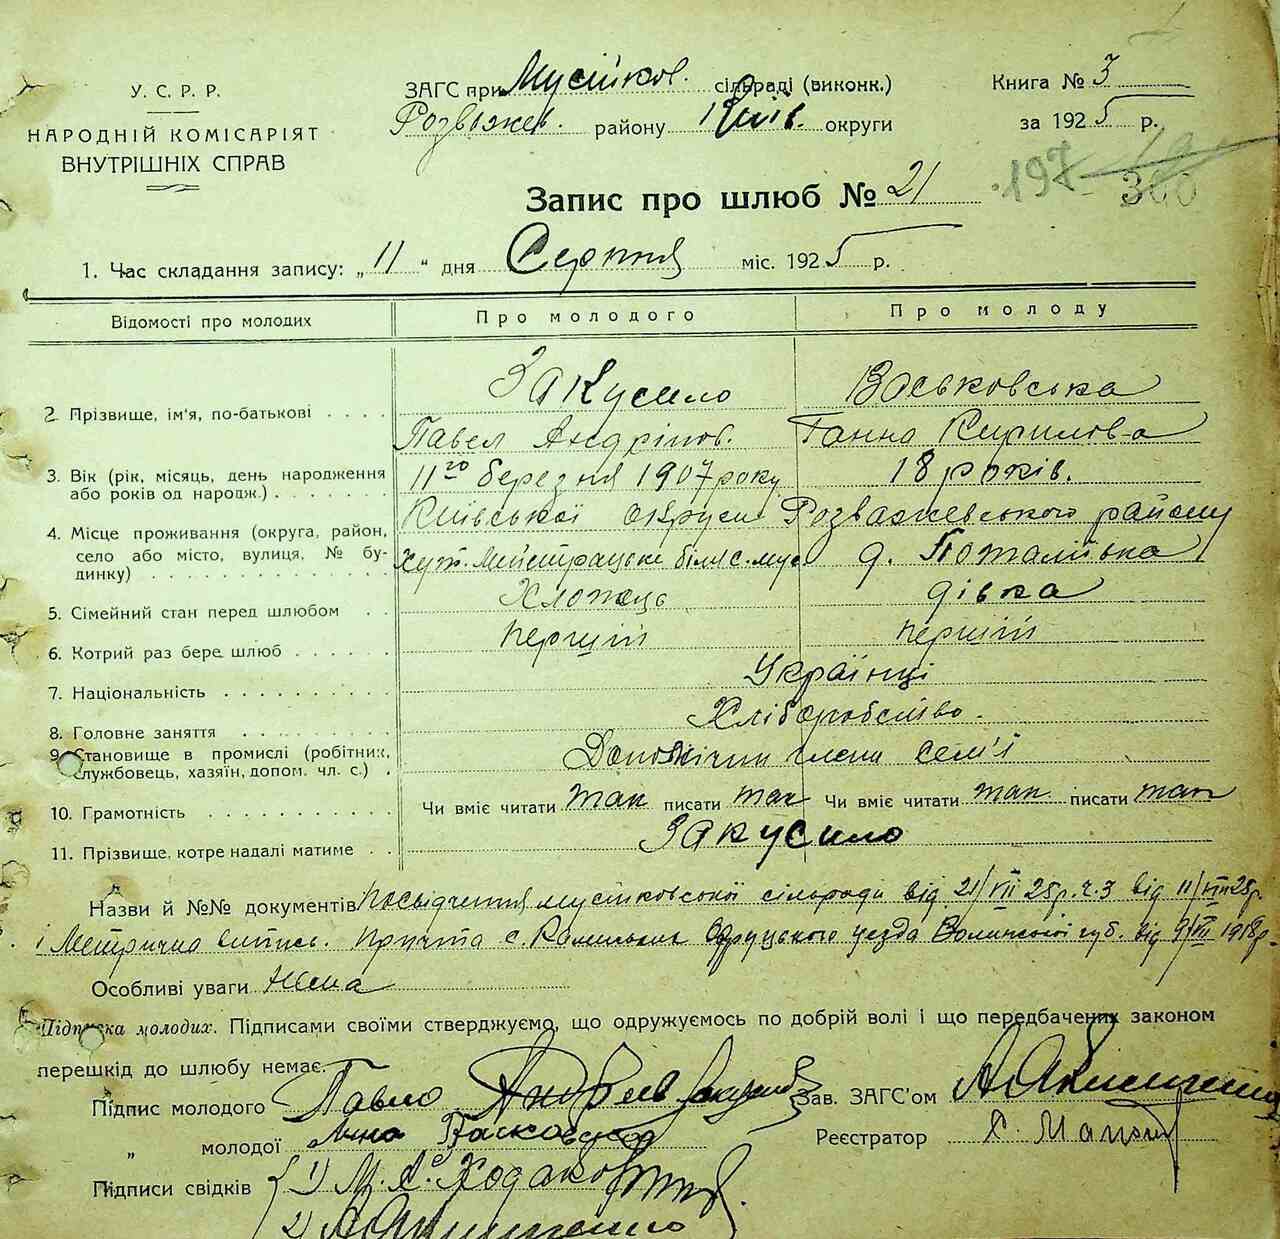 У. С. Р. Р.
НАРОДНІЙ КОМІСАРІЯТ
ВНУТРІШНІХ СПРАВ
ЗАГС при Мусійков. сільраді (виконк.)
Розважев. району Київ. округи
Книга № 3
за 1925 р.
197
300
Запис про шлюб № 21
1. Час складання запису: „11“ дня Серпня міс. 1925 р.
Відомості про молодих Про молодого Про молоду
2. Прізвище, ім'я, по-батькові . . . . Закусило Васьковська
Павел Андріїов. Ганна Кирилов-а
3. Вік (рік, місяць, день народження або років од народж.) . . . . . . . 11го березня 1907 року 18 років.
4. Місце проживання (округа, район, село або місто, вулиця, № будинку) . . . . . . . . . . . . Київської округи Розважевського району
хут. Мейстрацьке біля с. Мус д. Поталіївка
5. Сімейний стан перед шлюбом . . Хлопець дівка
6. Котрий раз бере шлюб . . . . . . перший перший
7. Національність . . . . . . . . . . Українці
8. Головне заняття . . . . . . . . . Хліборобство.
9. Становище в промислі (робітник, службовець, хазяїн, допом. чл. с.) . Допомічни члени сем'ї
10. Грамотність . . . . . . . . . . . Чи вміє читати так писати так Чи вміє читати так писати так
11. Прізвище, котре надалі матиме . . Закусило
Назви й №№ документів Посвідчення мусійковської сільради від 21/VII 25р. ч. 3 від 11/VIII 25р.
і Метрична випись. причта с. Каменьки Овруцького уезда Волинської губ. від 9/VII 1918р.
Особливі уваги Нема
Підписка молодих. Підписами своїми стверджуємо, що одружуємось по добрій волі і що передбачених законом
перешкід до шлюбу немає.
Підпис молодого Павло Андреев
Зав. ЗАГС'ом А. Якименко
„ молодої Анна
Реєстратор
Підписи свідків 1) М. А. Ходаков
2) А. Якименко